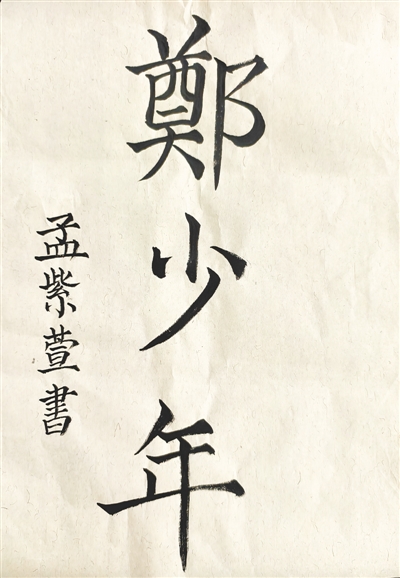 鄭少年
孟紫萱書